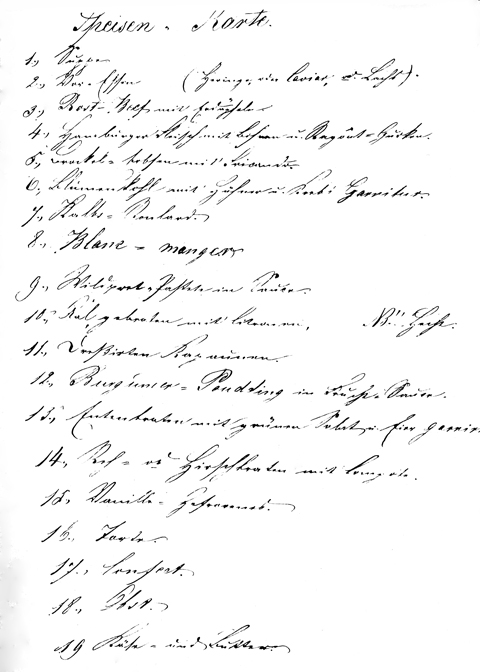 Speisen-Karte.
1., Suppe
2., Vor-Essen (Heringe, ein Caviar, u. Lachs).
3., Rost-Beef mit Erdäpfeln
4., Hamburger Fleisch mit Bohnen u. Ragout-Gurken.
5., Brockel-Erbsen mit Fricando.
6., Blumenkohl mit Hühner u. Krebs Garnitur.
7., Kalbs-Roulard.
8., Blanc-manger
9., Wildpret-Pastete in Sauce.
10., Aal, gebraten mit Citronen, NB: Hecht.
11., Dressirten Kapaunen.
12., Pudding in Sauce.
13., Entenbraten mit grünen Salat u. Eier garnirt
14., Reh- od Hirschbraten mit Compote.
15., Vanille-Gefrorenes.
16., Torte.
17., Confect.
18., Obst.
19 Käse- und Butter.